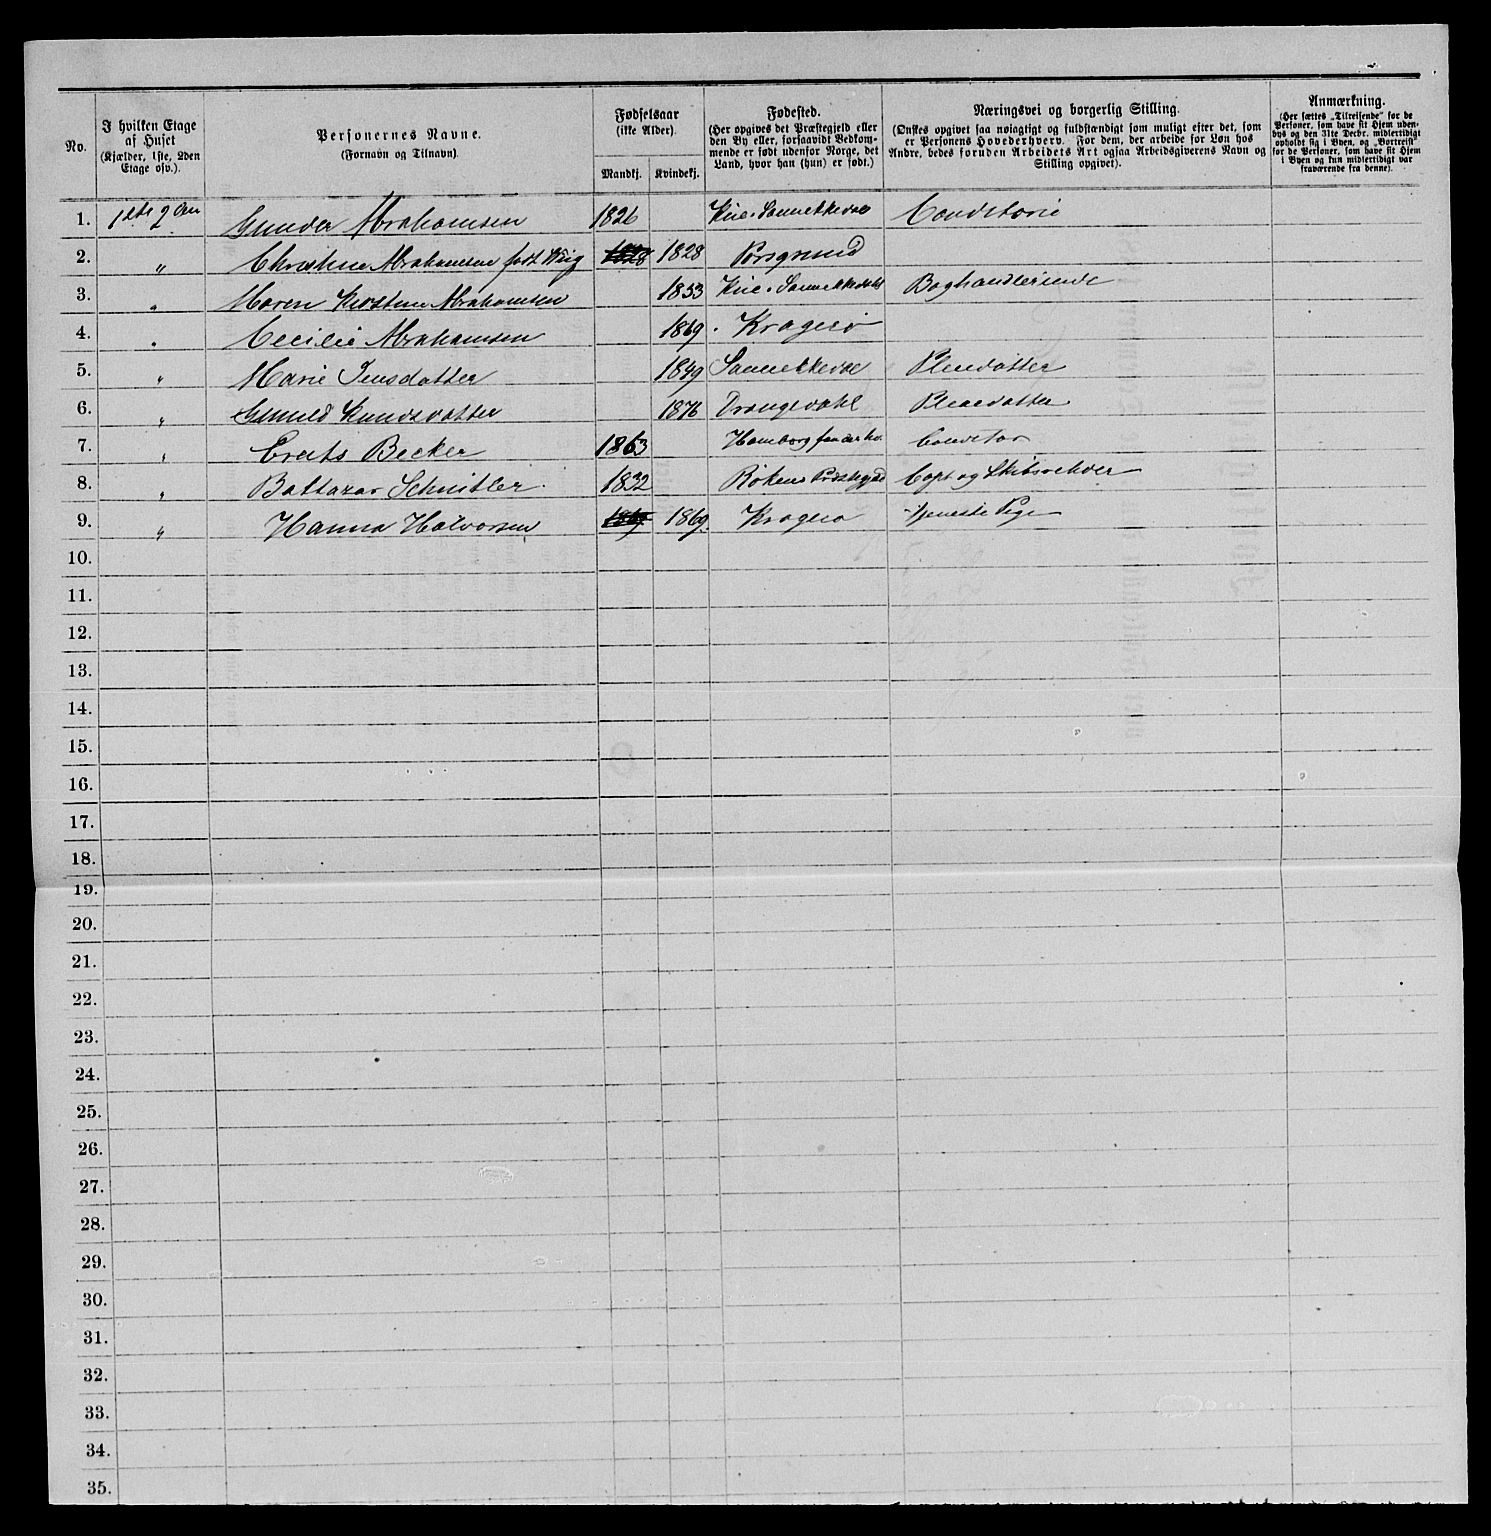 No. | I hvilken Etage af Huset (Kjælder, 1ste, 2den Etage osv.). | Personernes Navne. (Fornavn og Tilnavn). | Fødselsaar (ikke Alder). Mandkj. | Kvindekj. | Fødested. (Her opgives det Præstegjeld eller den By eller, forsaavidt Vedkommende er født udenfor Norge, det Land, hvor han (hun) er født.) | Næringsvei og borgerlig Stilling. (Ønskes opgivet saa nøiagtigt og fuldstændigt som muligt efter det, som er Personens Hovederhverv. For dem, der arbeide for Løn hos Andre, bedes foruden Arbeidets Art ogsaa Arbeidsgiverens Navn og Stilling opgivet). | Anmærkning. (Her sættes „Tilreisende“ for de Personer, som have sit Hjem udenbys og den 31te Decbr. midlertidigt opholdt sig i Byen, og „Bortreist“ for de Personer, som have sit Hjem i Byen og kun midlertidigt var fraværende fra denne).
1. | 1ste 2 | Gunder Abrahamsen | 1826 | | Sannekedal | Conditorie
2. | „ | Christine Abrahamsen født | 1828 | 1828 | Porsgrund
3. | „ | Maren Kirstine Abrahamsen | | 1853 | Sannekedahl | Boghandlerinde
4. | „ | Cecilie Abrahamsen | | 1869 | Kragerø
5. | „ | Marie Jensdatter | | 1849 | Sannekedal | Pleiedatter
6. | „ | Gunild Knudsdatter | | 1876 | Drangedahl | Pleiedatter
7. | „ | Becker | 1863 | | Hamborg | Conditor
8. | „ | Baltazar Schnitler | 1832 | | Røken Præstegjeld | Capt og Skibsreder
9. | „ | Hanna Halvorsen | 1869 | 1869. | Kragerø | Tjeneste Pige
10.
11.
12.
13.
14.
15.
16.
17.
18.
19.
20.
21.
22.
23.
24.
25.
26.
27.
28.
29.
30.
31.
32.
33.
34.
35.